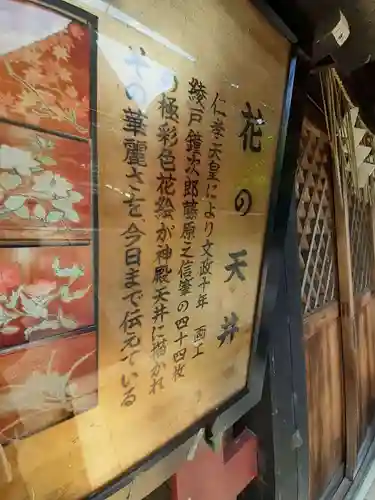 花の天井
仁孝天皇により文政十年 画工
綾戸鐘次郎藤原之信筆の四十四枚
の極彩色花絵が神殿に描かれ
その華麗さを、今日まで伝えている